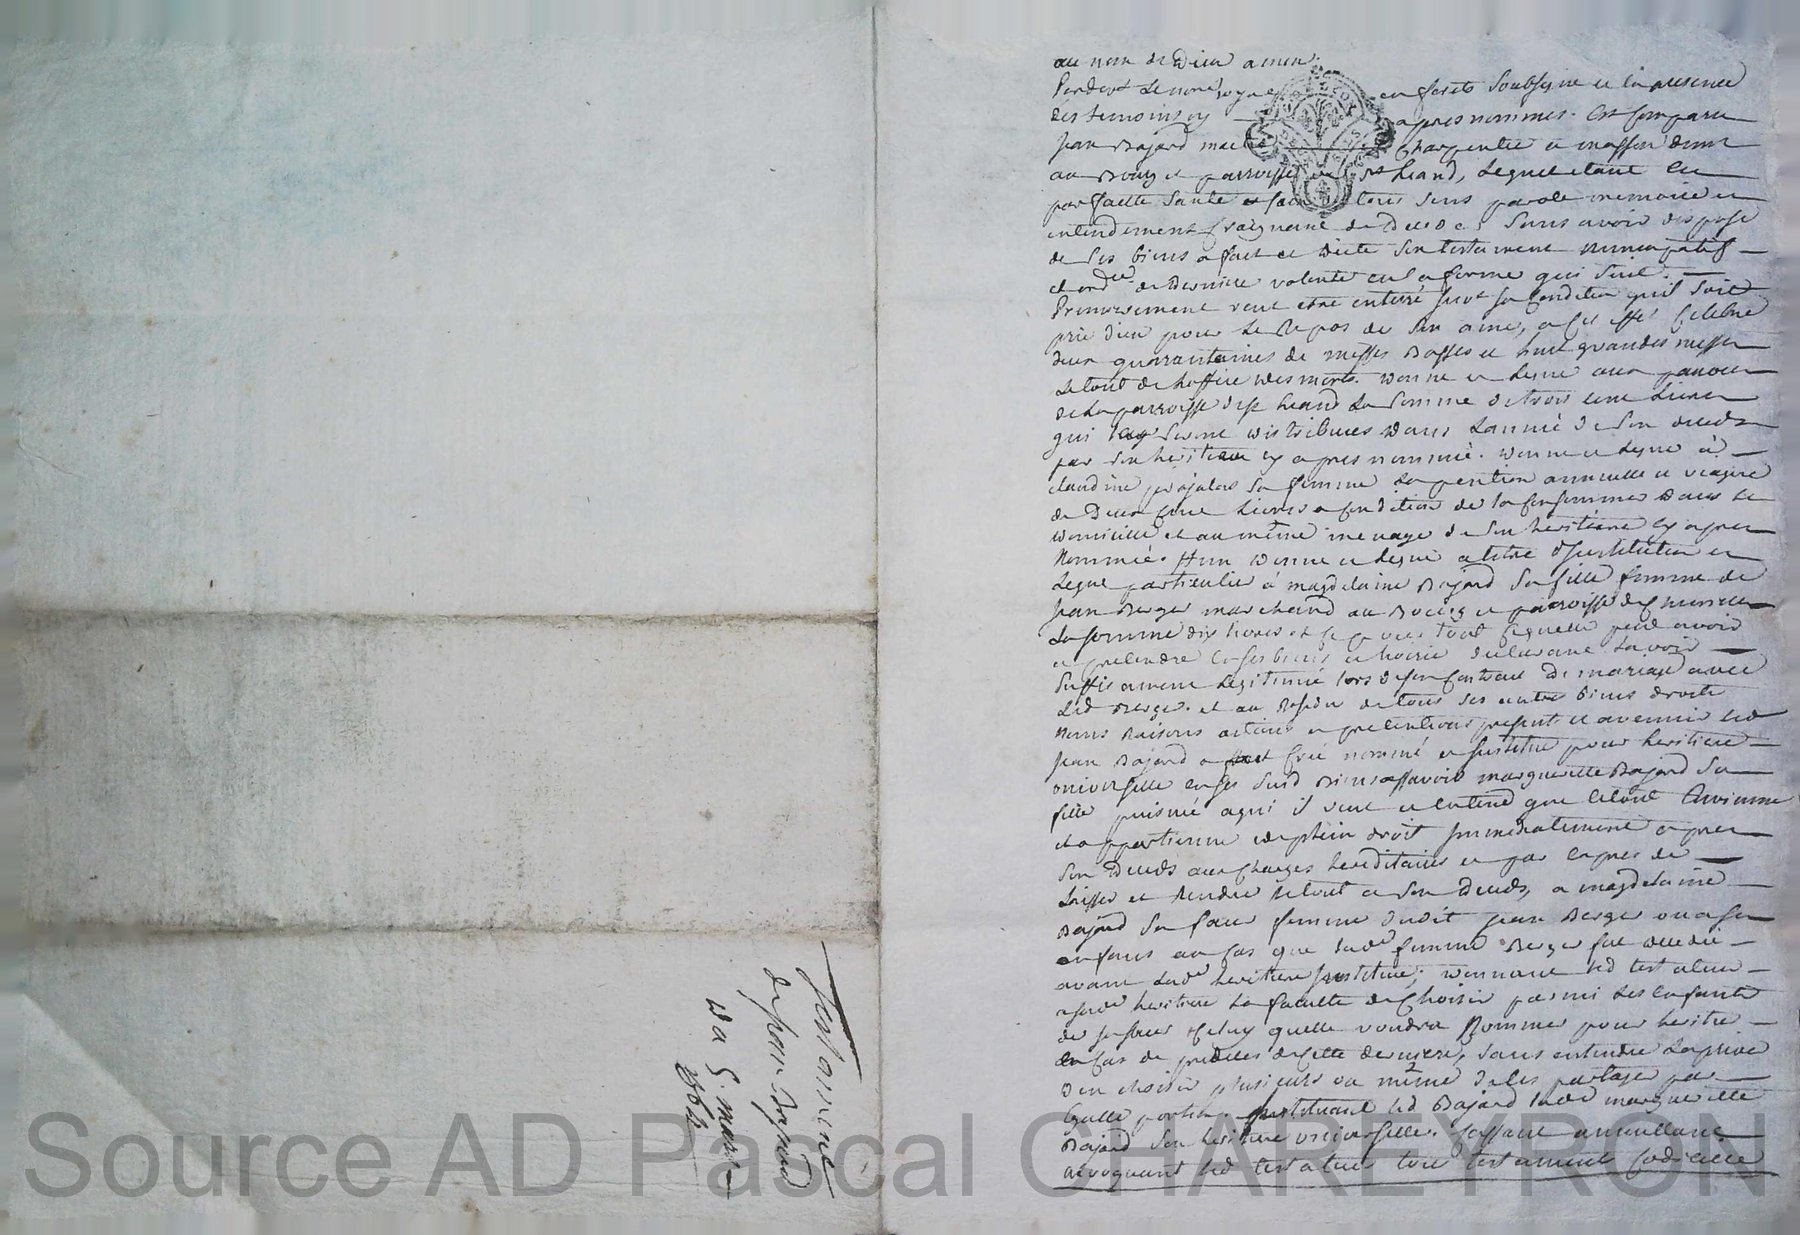 au nom de Dieu amen.
Pardevt Le notre royal en forets soubsigné et en presence
des temoins cy apres nommes. Est comparu
jean Bajard maitre charpentier et masson demt
au Bourg et parroisse de St heand, Lequel etant en
parfaitte santé et sain de tous sens parole memoire et
entendement craignant de deceder sans avoir dispose
de ses biens a fait et dicté son testament nuncupatif
et ordce de derniere volonté en la forme qui suit.
Premierement veut etre enterré suivt sa condition qu'il soit
prié dieu pour Le Repos de son ame, a cet effet Celebré
deux quarantaines de messes Basses et huit grandes messes
Le tout de Loffice des morts. Donne et Legue aux pauvres
de La parroisse de St heand La somme de trois cent Livres
qui seront distribuées dans Lannée de son deceds
par son heritiere cy apres nommée. Donne et Legue à
claudine sa femme La pention annuelle et viagere
de deux cent Livres a condition de la consommer dans Le
domicille et au même menage de son heritiere cy apres
Nommée. Item Donne et Legue a titre d'Institution et
Legue particulier à magdelaine Bajard sa fille femme de
jean Berger marchand au Bourg et parroisse de
La somme dix livres et ce pour tout ce quelle peut avoir
et pretendre en ses biens et hoirie declarant Lavoir
suffisament Legitimée lors de son Contract de mariage avec
Led Berger. et au Residu de tous ses autres biens droits
noms raisons actions et pretentions presents et avennir Led
jean Bajard a Creé nommé et Institué pour heritiere
universelle en ses susd Biens assavoir marguerite Bajard sa
fille puisnée a qui il veut et entend que le tout Avienne
et appartienne de plein droit Immediatement apres
son Deceds aux charges hereditaires et par expres de
Laisser et Rendre le tout a son Deceds, a magdelaine
Bajard sa soeur femme dudit jean Berger ou a ses
enfans au cas que Lade femme Berger fut decedée
avant Lade heritiere Instituée; donnant led testateur
a sade heritiere La faculté de Choisir parmi Les enfants
de sa soeur Celuy quelle voudra Nommer pour heritier
en cas de predeces de cette derniere, sans entendre La priver
d'en choisir plusieurs ou même de les partager par
Egalle portion. Instituant led Bajard lade marguerite
Bajard son heritiere universelle. Cassant annullant
Revoquant led testateur tout testament Codicille
Testament
de jean Bajard
du 5 mars
Source AD Pascal CHAREYRON